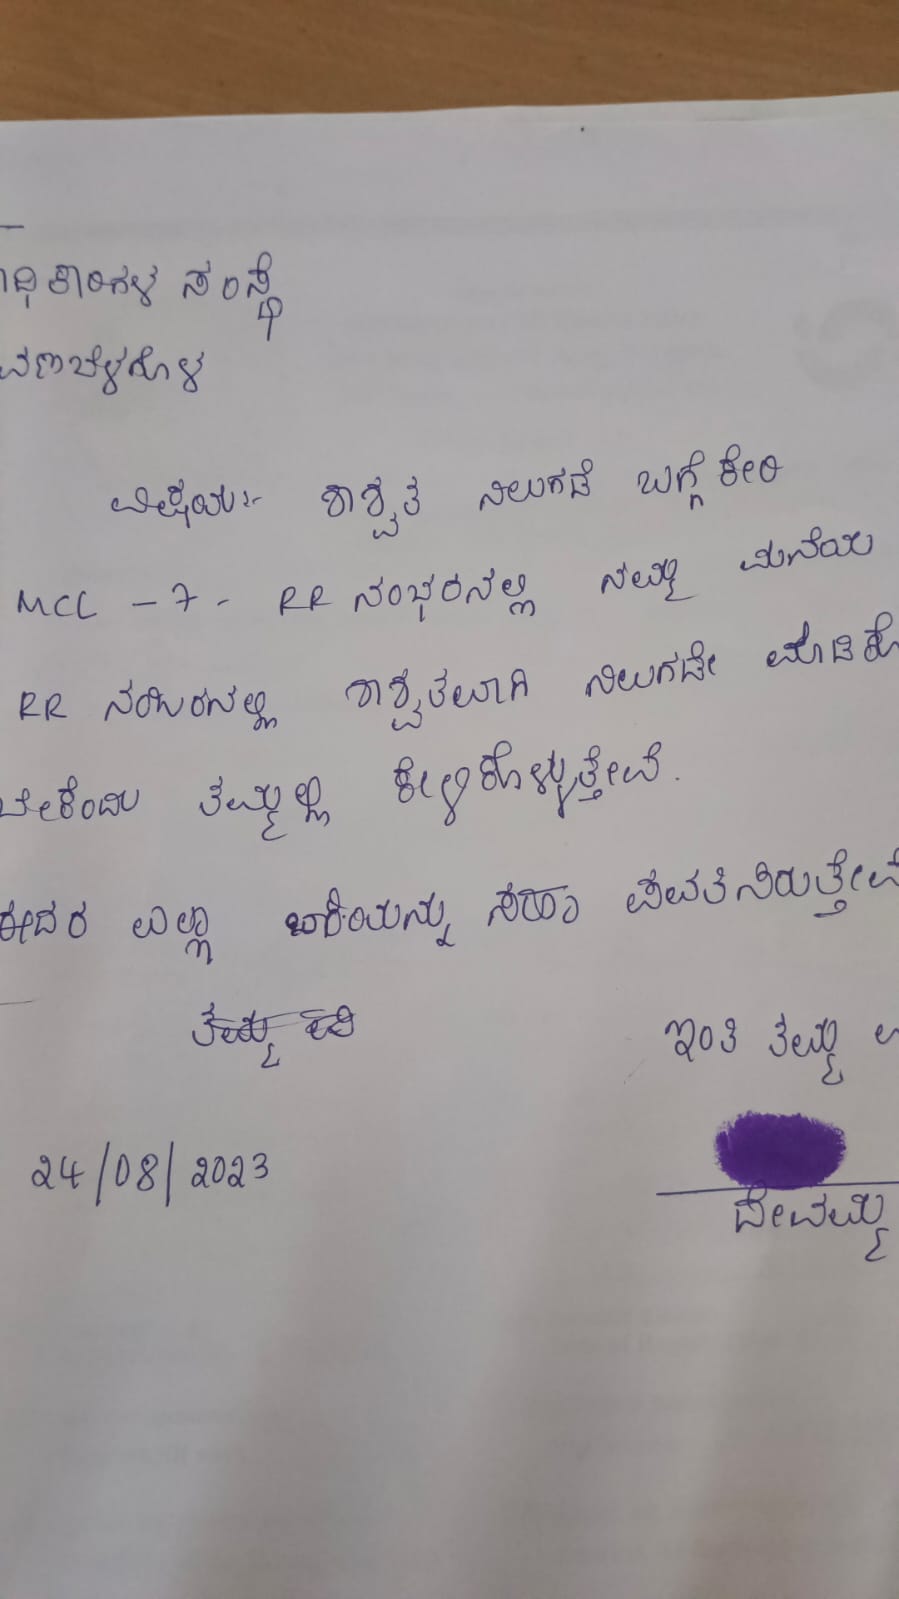 ಧಿಕಾರಿಗಳ ಸಂಸ್ಥೆ
ವಣಬೆಳಗೊಳ
ವಿಷಯ:- ಶಾಶ್ವತ ನಿಲುಗಡೆ ಬಗ್ಗೆ ಕೋರಿ
MCL - 7 - RR ನಂಬರನಲ್ಲಿ ನಮ್ಮ ಮನೆಯ
RR ನಂಬರನಲ್ಲಿ ಶಾಶ್ವತವಾಗಿ ನಿಲುಗಡೇ ಮಾಡಿಕೊ
ಬೇಕೆಂದು ತಮ್ಮಲ್ಲಿ ಕೇಳಿಕೊಳ್ಳುತ್ತೇವೆ.
ಈದರ ಎಲ್ಲಾ ಬಾಕಿಯನ್ನು ಸಹಾ ಪಾವತಿಸಿರುತ್ತೇವೆ
ಇಂತಿ ತಮ್ಮ
24/08/2023
ದೇವಮ್ಮ